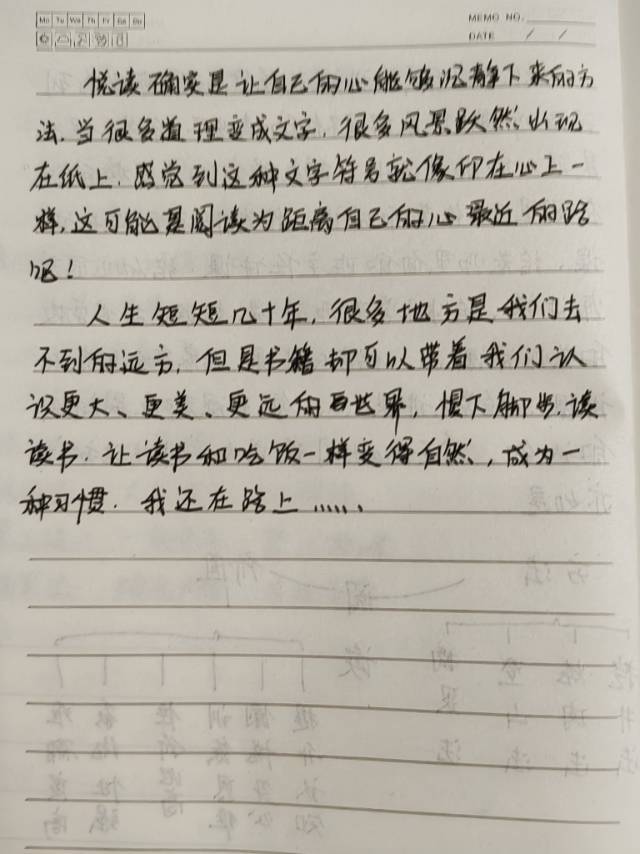 Mo Tu We Th Fr Sa Su
MEMO NO.
DATE / /
悦读确实是让自己的心能够沉静下来的方
法.当很多道理变成文字.很多风景跃然出现
在纸上.感觉到这种文字符号就像印在心上一
样,这可能是阅读为距离自己的心最近的路
吧!
人生短短几十年,很多地方是我们去
不到的远方,但是书籍却可以带着我们认
识更大、更美、更远的世界,慢下脚步.读
读书.让读书和吃饭一样变得自然,成为一
种习惯.我还在路上......